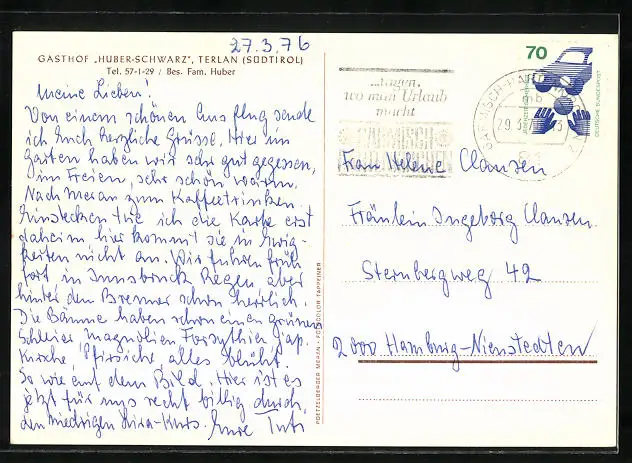 27.3.76
GASTHOF „HUBER-SCHWARZ", TERLAN (SÜDTIROL)
Tel. 57-1-29 / Bes. Fam. Huber
Meine Lieben!
Von einem schönen Ausflug sende
ich Euch herzliche Grüsse. Hier im
Garten haben wir sehr gut gegessen,
im Freien, sehr schön warm.
Nach Meran zum Kaffeetrinken.
Einstecken tue ich die Karte erst
daheim hier kommt sie in Ewig-
keiten nicht an. Wir fuhren früh
fort in Innsbruck Regen aber
hinter dem Brenner schon herrlich.
Die Bäume haben schon einen grünen
Schleier, Magnolien Forsythien jap.
Kirsche, Pfirsiche alles blüht.
So wie auf dem Bild. Hier ist es
jetzt für uns recht billig durch
den niedrigen Lira-Kurs. Eure
POETZELBERGER MERAN - FOTOCOLOR TAPPEINER
...tagen,
wo man Urlaub
macht
GARMISCH
29.3.
mb
70
DEUTSCHE BUNDESPOST
Frau Helene Clausen
Fräulein Ingeborg Clausen
Sternbergweg 42
2000 Hamburg-Nienstedten